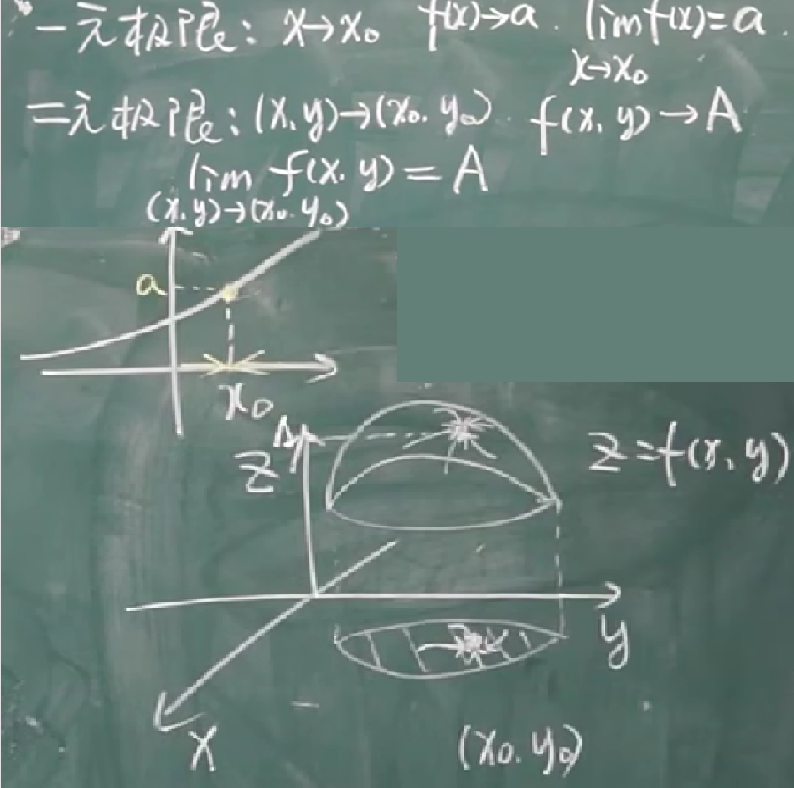 一元极限: x→x₀ f(x)→a. lim f(x)=a.
x→x₀
二元极限: (x, y)→(x₀, y₀) f(x, y)→A
lim f(x, y)=A
(x, y)→(x₀, y₀)
a
x₀
A
z
z=f(x, y)
y
x
(x₀, y₀)